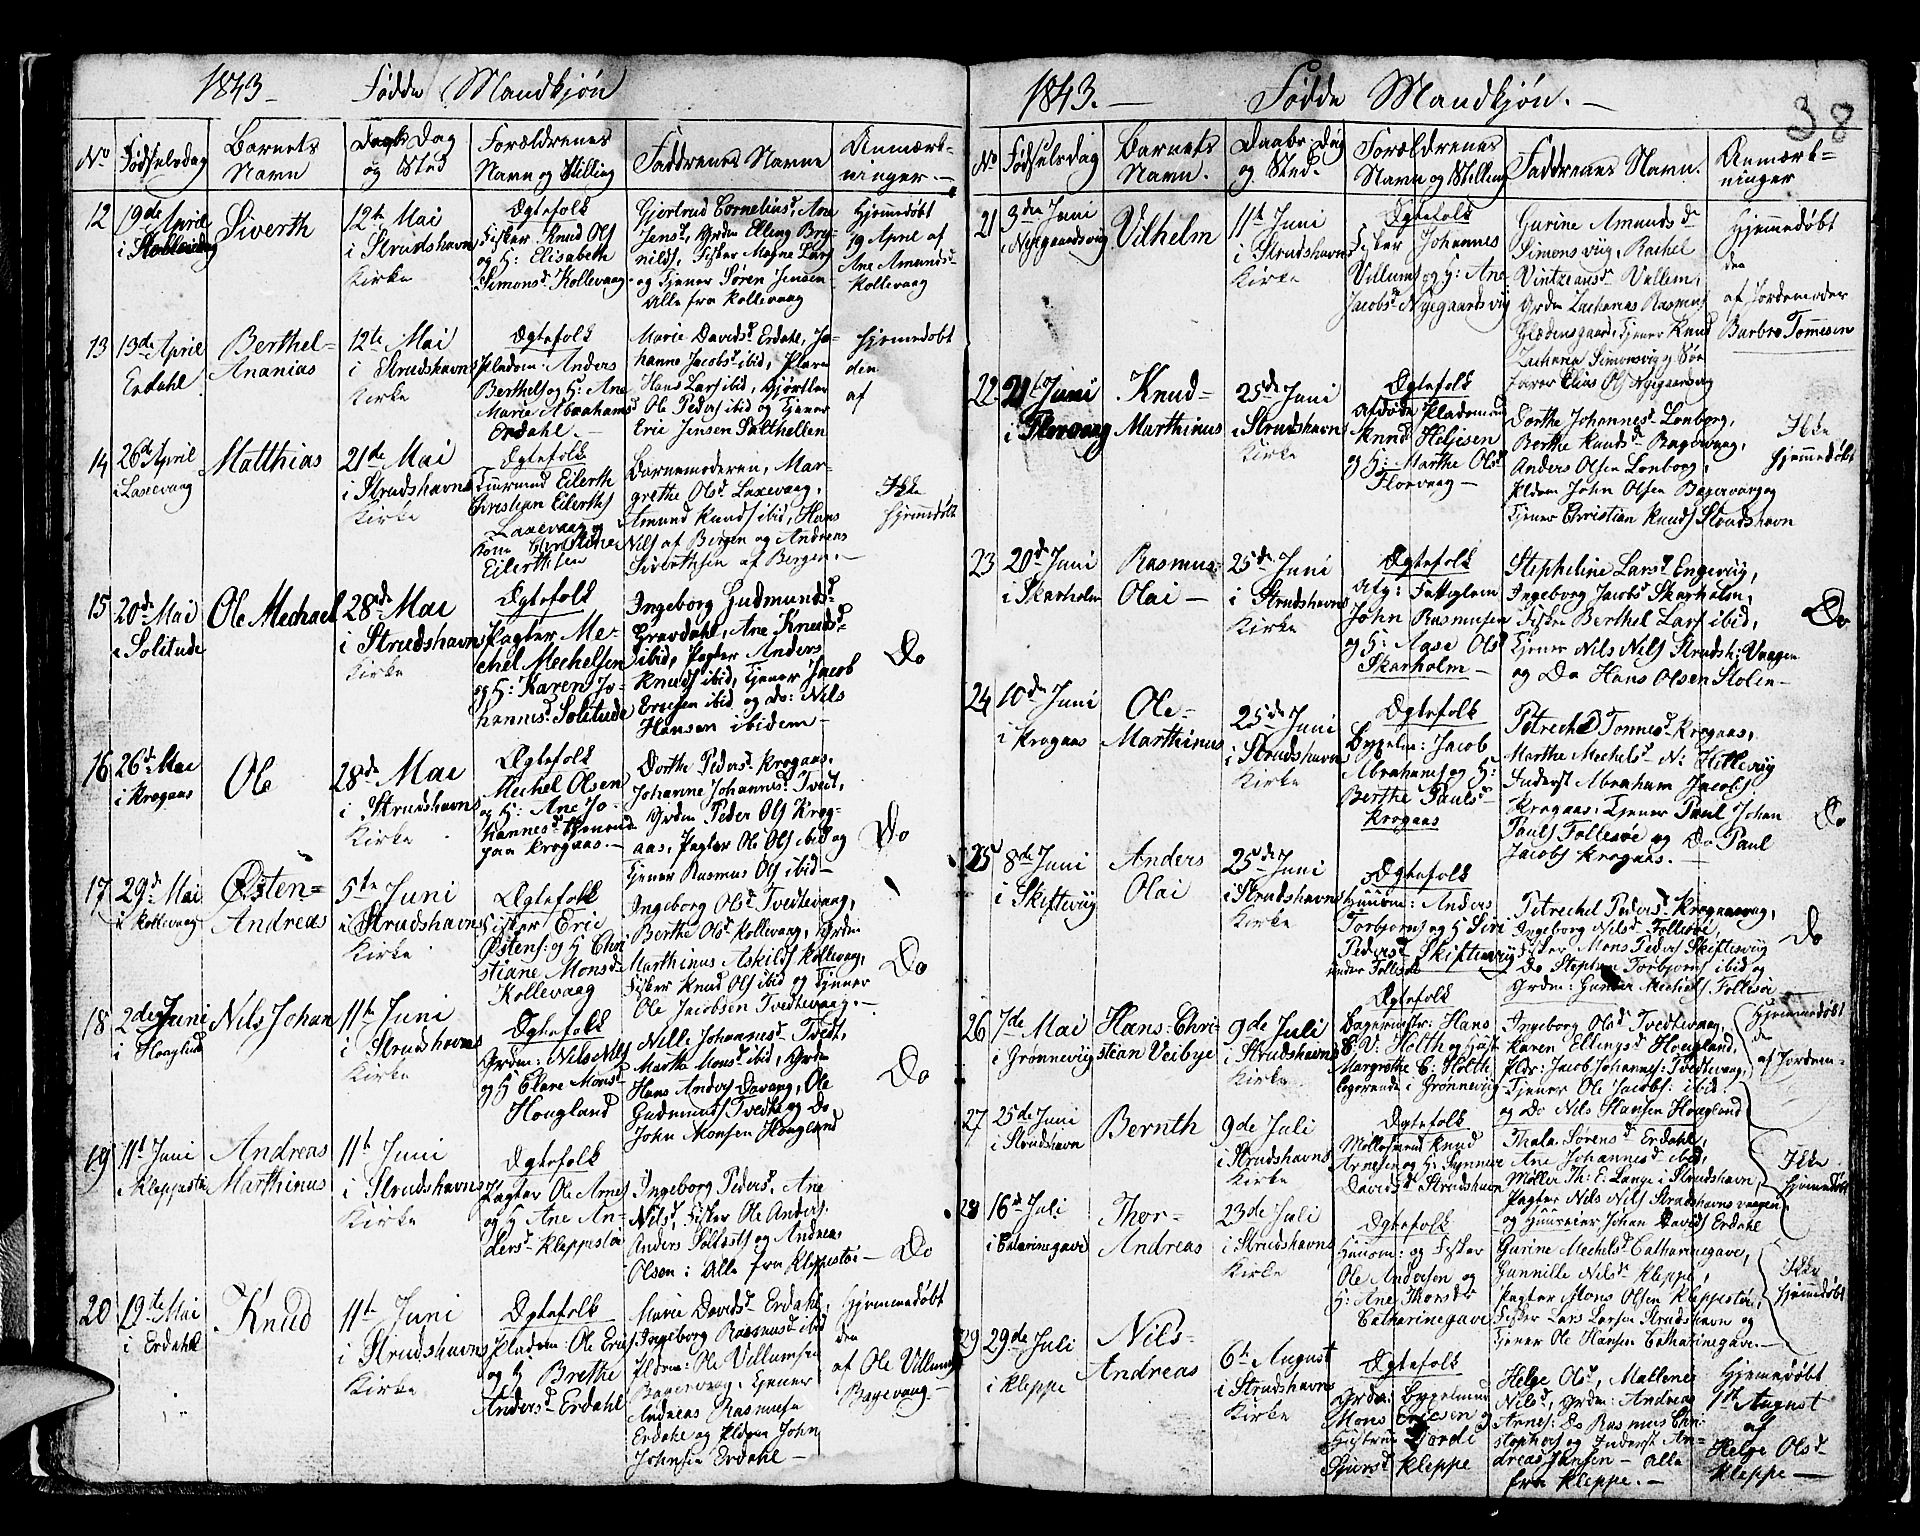 1843 Fødde Mandkjøn
No
Fødselsdag
Barnets
Navn
Daabs Dag
og Sted
Forældrenes
Navn og Stilling
Faddrenes Navne
Anmærk-
ninger.
12
19de April
i Kollevaag
Siverth
12te Mai
i Strudshavns
Kirke
Ægtefolk
Fisker Knud Ols
og H: Elisabeth
Simonsd Kollevaag
Gjertrud Corneliusd, Ane
Jensd, Grdm Elling Bry-
nilds, Fisker Mogne Lars
og Tjener Søren Jensen
Alle fra Kollevaag
Hjemmedøbt
19 April af
Ane Amundsd
Kollevaag
13
13de April
Erdahl
Berthel-
Ananias
12te Mai
i Strudshavns
Kirke
Ægtefolk
Pladsm: Anders
Berthels og H: Ane
Marie Abrahamsd
Erdahl.
Marie Davidsd Erdahl, Jo-
hanne Jacobsd ibid,
Hans Lars ibid,
Ole Peders ibid og Tjener
Eric Jensen Salthellen
Hjemmedøbt
den
af
14
26de April
Laxevaag
Matthias
21de Mai
i Strudshavns
Kirke
Ægtefolk
Eilerth
Christian Eilerths
Laxevaag og
Kone Christine
Eilerthsen
Barnemoderen, Mar-
grethe Olsd Laxevaag,
Amund Knuds ibid, Hans
Nils af Bergen og Andreas
Siverthsen af Bergen.
Ikke
hjemmedøbt
15
20de Mai
Solitude
Ole Mechael
28de Mai
i Strudshavns
Kirke
Ægtefolk
Pagter Me-
chel Mechelsen
og H: Karen Jo-
hannisd Solitude
Ingeborg Gudmundsd
Gravdahl, Ane Knudsd
ibid, Pagter Anders
Knuds ibid, Tjener Jacob
Ericsen ibid og do: Nils
Hansen ibidem
Do
16
26de Mai
i Krogaas
Ole
28de Mai
i Strudshavns
Kirke
Ægtefolk
Mechel Olsen
og H: Ane Jo-
hannesd
paa Krogaas.
Dorthe Pedersd Krogaas,
Johanne Johannisd Tvedt,
Grdm Peder Ols Krog-
aas, Pagter Ole Ols ibid og
Tjener Rasmus Ols ibid
Do
17
29de Mai
i Kollevaag
Østen=
Andreas
5te Juni
i Strudshavns
Kirke
Ægtefolk
Fisker Eric
Østens: og H Chri-
stiane Monsd
Kollevaag
Ingeborg Olsd Tvedtevaag,
Berthe Olsd Kollevaag, Grdm
Marthinus Askilds Kollevaag,
Fisker Knud Ols ibid og Tjener
Ole Jacobsen Tvedtevaag.
Do
18
2de Juni
i Hougland
Nils Johan
11te Juni
i Strudshavns
Kirke
Ægtefolk
Grdm: Nils Nils
og H Elare Monsd
Hougland
Nille Johannesd Tvedt,
Marthe Monsd ibid, Grdm
Hans Anders Davang, Ole
Gudmunds Tvedt og Do
John Monsen Hougland
Do
19
11te Juni
i Kleppestø
Andreas
Marthinus
11te Juni
i Strudshavns
Kirke
Ægtefolk
Pagter Ole Arnes
og H Ane An-
dersd Kleppestø
Ingeborg Pedersd, Ane
Nilsd, Fisker Ole Anders,
Anders og Andreas
Olsen: Alle fra Kleppestø
Do
20
19te Mai
i Erdahl
Knud
11te Juni
i Strudshavns
Kirke
Ægtefolk
Pladsm: Ole Erics
og H Brethe
Andersd Erdahl
Marie Davidsd Erdahl,
Ingeborg Rasmusd ibid
Pldsm: Ole Villumsen
Bagervaag, Tjener
Andreas Rasmusen
Erdahl og Pldsm John
Johnsen Erdahl
Hjemmedøbt
den
af Ole Villums
Bagevaag
1843. Fødde Mandkjøn.
38
No
Fødselsdag
Barnets
Navn.
Daabs Dag
og Sted.
Forældrenes
Navn og Stilling
Faddrenes Navn.
Anmærk=
ninger
21
3die Juni
i Nygaardsviig
Vilhelm
11te Juni
i Strudshavns
Kirke
Ægtefolk
Fisker Johannes
Villums og H: Ane
Jacobsd Nygaardsviig
Gurine Amundsd
Simonsviig, Rachel
Vallem,
Grdm Zacharias Rasmus
Gledensgaard, Tjener Knud
Zacharia Simonsvig og
Elias Ols Nygaardsvig
Hjemmedøbt
den
af Jordemoder
Barbro Tomesen
22
21de Juni
i Florvaag
Knud-
Marthinus
25de Juni
i Strudshavns
Kirke
Ægtefolk
Afdøde Pladsmand
Knud Heljesen
og H: Marthe Olsd
Florvaag
Dorthe Johannesd Lonborg,
Berthe Knudsd Bagevaag,
Anders Olsen Lonborg,
Pldsm John Olsen Bagevaag og
Tjener Christian Knuds Strudshavn
Ikke
hjemmedøbt
23
20de Juni
i Skarholm
Rasmus-
Olai
25de Juni
i Strudshavns
Kirke
Ægtefolk
John Rasmusen
og H: Aase Olsd
Skarholm
Stepheline Larsd Engeviig,
Ingeborg Jacobsd Skarholm,
Fisker Berthel Lars ibid,
Tjener Nils Nils Strudsh: Vaagen
og Do Hans Olsen Stolen
Do
24
10de Juni
i Krogaas
Ole-
Marthinus
25de Juni
i Strudshavns
Kirke
Ægtefolk
Jacob
Abrahams og H:
Berthe Paulsd
Krogaas
Petrechel Tommesd Krogaas,
Marthe Mechelsd N: Hillevig
Inderst Abraham Jacobs
Krogaas, Tjener Paul Johan
Pauls Follesøe og Do Paul
Jacobs Krogaas.
Do
25
8de Juni
i Skiftesviig
Anders
Olai
25de Juni
i Strudshavns
Kirke
Ægtefolk
Huusm: Anders
Torbjorns og H Siri
Pedersd Skiftesviig
under Follesøe
Petrechel Pedersd Krogaasvaag,
Ingeborg Nilsd Follesøe,
Fisker Mons Peders Skiftesviig
Do Stephen Torbjorns ibid og
Grdm: Gunder Mechels Follesøe
Do
26
7de Mai
i Grønneviig
Hans-Chri-
stian Veibye
9de Juli
i Strudshavns
Kirke
Ægtefolk
Bagermestr: Hans
V: Holth og Hust
Margrethe C: Holth
logerende i Grønneviig
Ingeborg Olsd Tvedtevaag,
Karen Ellingsd Hougland,
Plds: Jacob Johannes: Tvedtevaag,
Tjener Ole Jacobs: ibid
og Do Nils Hansen Hougland
Hjemmedøbt
d
af Jordem
27
25de Juni
i Strudshavn
Bernth
9de Juli
i Strudshavns
Kirke
Ægtefolk
Møllesvend Knud
Arnesen og H: Synneve
Davidsd Strudshavn
Thala Sørensd Erdahl,
Ane Johannesd ibid,
Møller Th: E. Lange i Strudshavn,
Pagter Nils Nils Strudshavns vaagen,
og Huuseier Johan Davids Erdahl
Ikke
hjemmedøbt
28
16de Juli
i Catarinegave
Thor-
Andreas
23de Juli
i Strudshavns
Kirke
Ægtefolk
Huusm: og Fisker
Ole Andersen og
H: Ane Thorsd
Catharinegave
Gurine Mechelsd Catharinegave,
Gunnille Nilsd Kleppe,
Pagter Mons Olsen Kleppestøe,
Fisker Lars Larsen Strudshavn og
Tjener Ole Hansen Catharinegave.
Ikke
hjemmedøbt
29
29de Juli
i Kleppe
Nils-
Andreas
6te August
i Strudshavns
Kirke
Ægtefolk
Grdm: Bygselmd
Mons Ericsen og
Hustrue Gjordi
Sjursd Kleppe
Helge Olsd, Mallene
Nilsd, Grdm: Andreas
Arnes: Do Rasmus Chri-
stophers og Inderst An-
dreas Jansen alle
fra Kleppe.
Hjemmedøbt
1st August
af
Helge Olsd
Kleppe